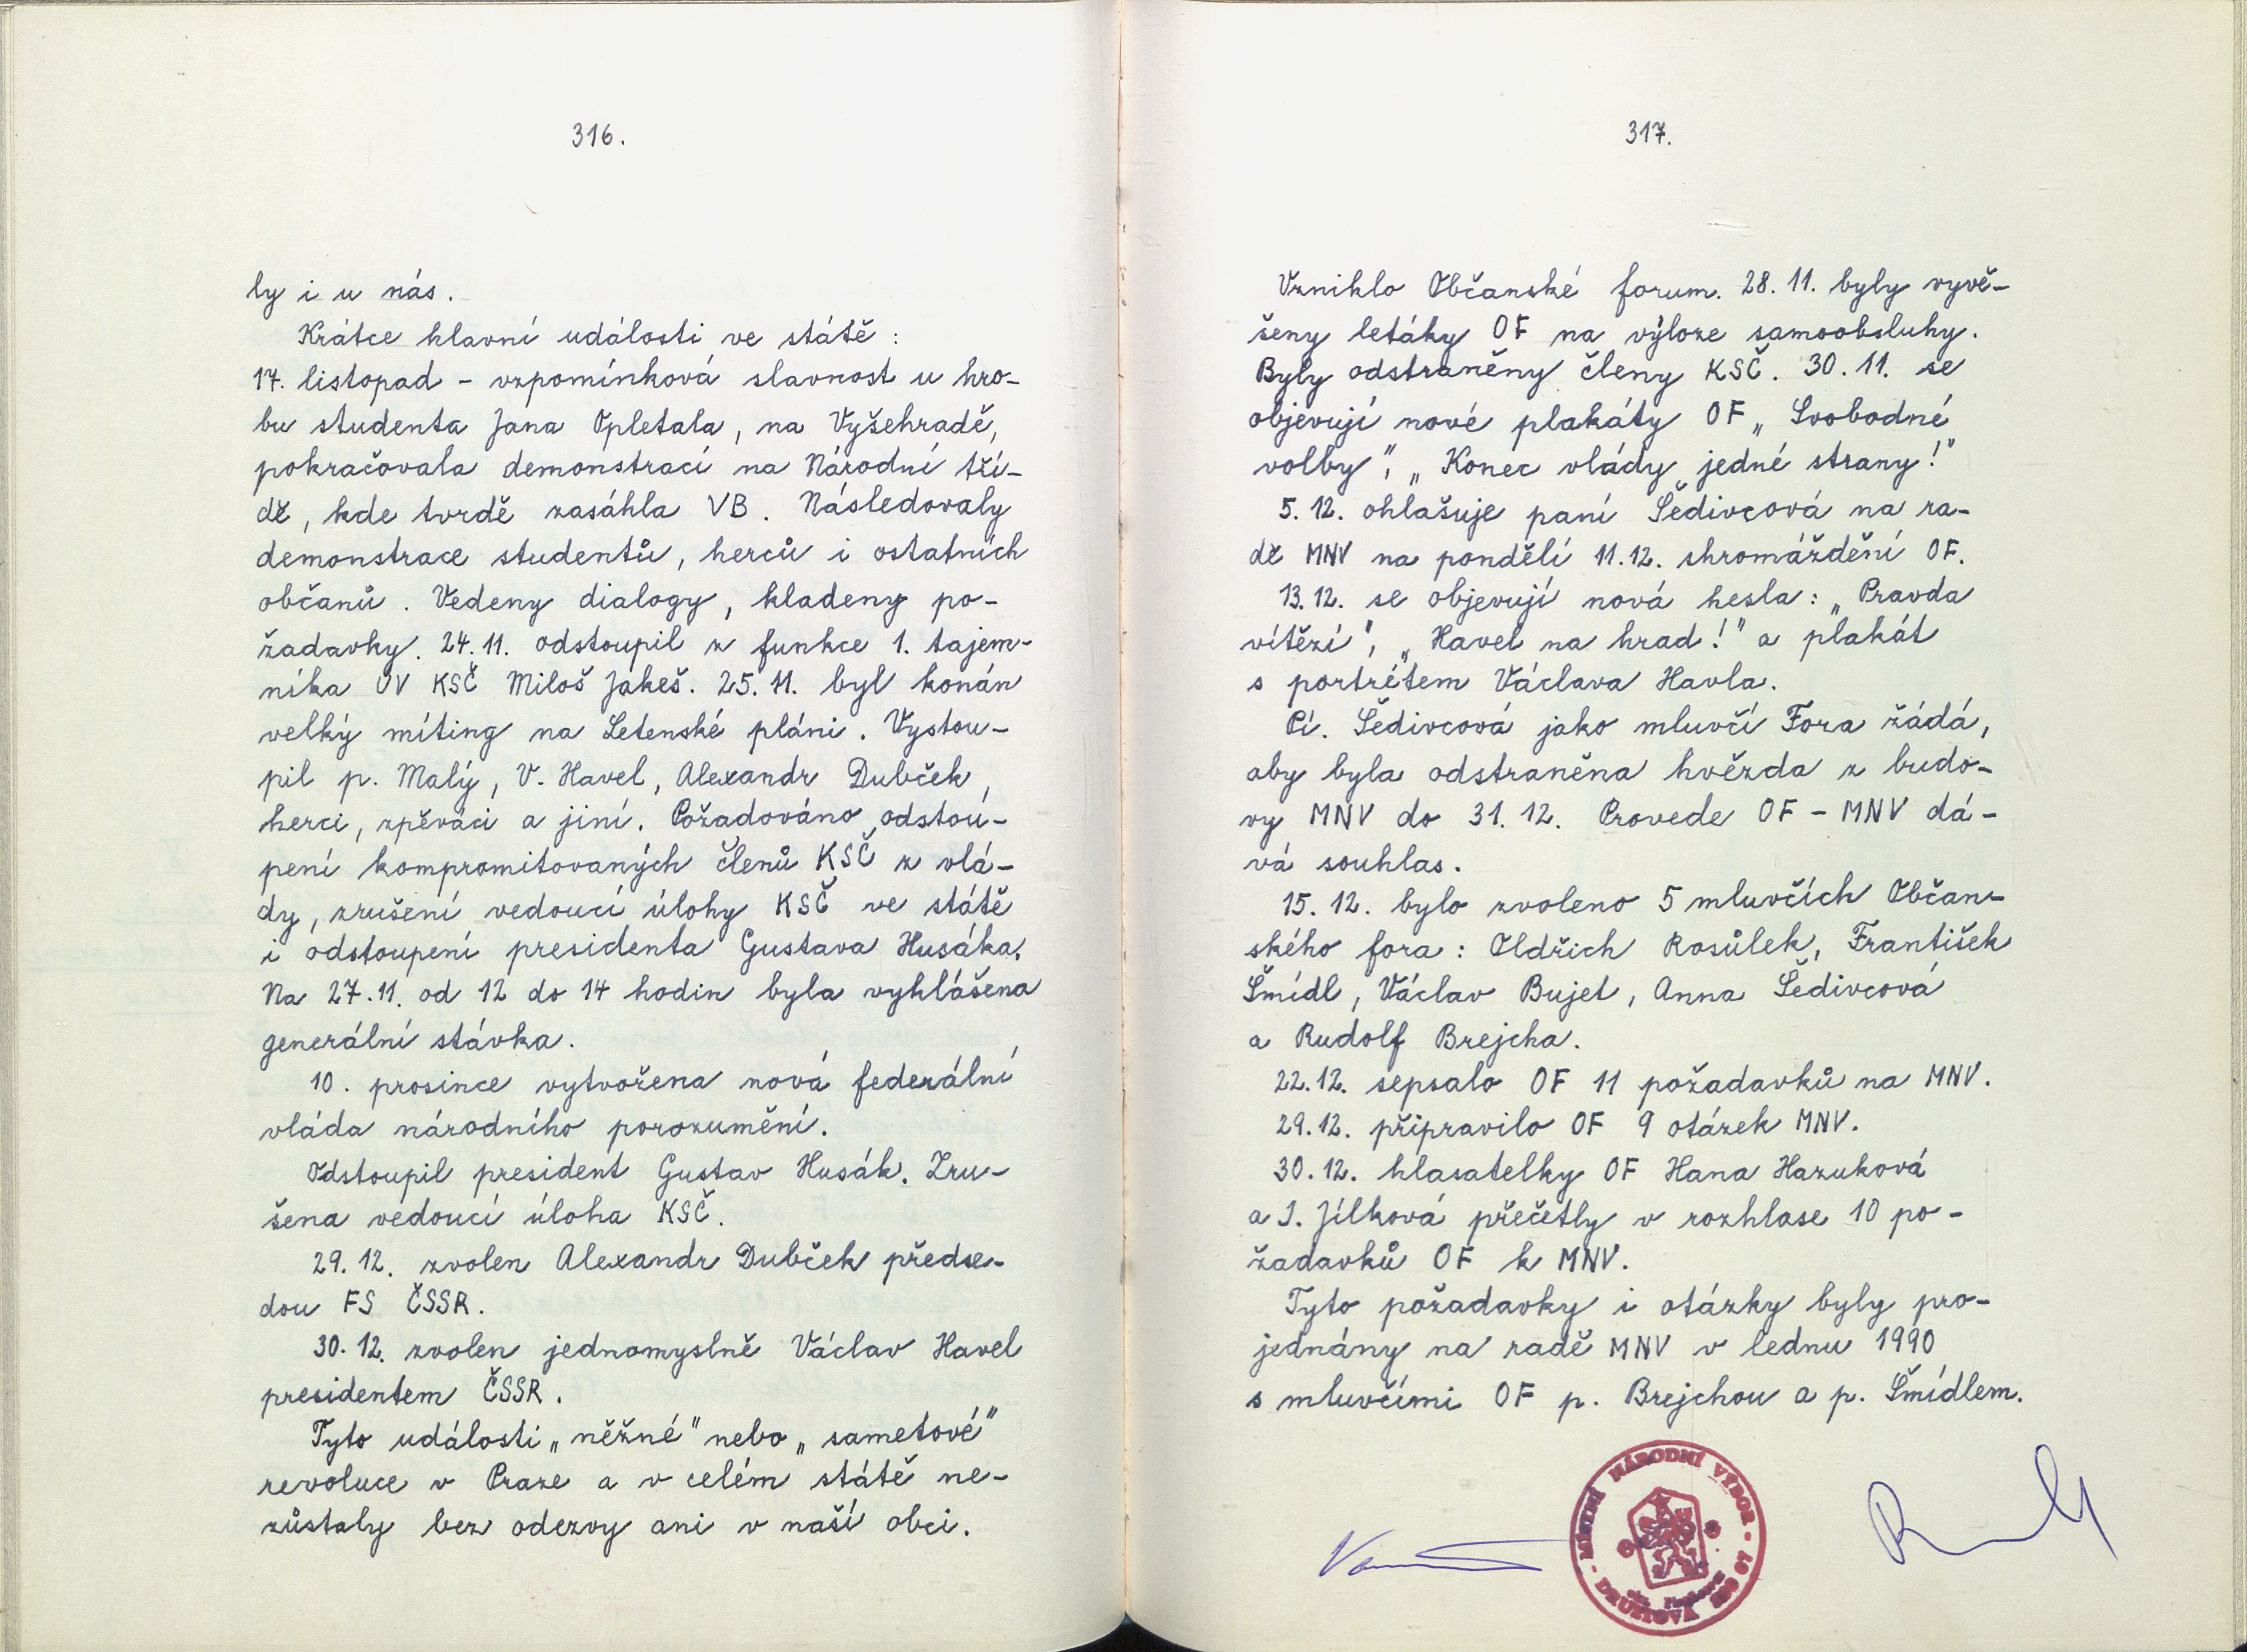 316.
ly i u nás.
Krátce hlavní události ve státě :
17. listopad - vzpomínková slavnost u hro-
bu studenta Jana Opletala, na Vyšehradě,
pokračovala demonstrací na Národní tří-
dě, kde tvrdě zasáhla VB. Následovaly
demonstrace studentů, herců i ostatních
občanů. Vedeny dialogy, kladeny po-
žadavky. 24.11. odstoupil z funkce 1. tajem-
níka ÚV KSČ Miloš Jakeš. 25.11. byl konán
velký míting na Letenské pláni. Vystou-
pil p. Malý, V. Havel, Alexandr Dubček,
herci, zpěváci a jiní. Požadováno odstou-
pení kompromitovaných členů KSČ z vlá-
dy, zrušení vedoucí úlohy KSČ ve státě
i odstoupení presidenta Gustava Husáka.
Na 27.11. od 12 do 14 hodin byla vyhlášena
generální stávka.
10. prosince vytvořena nová federální
vláda národního porozumění.
Odstoupil president Gustav Husák. Zru-
šena vedoucí úloha KSČ.
29.12. zvolen Alexandr Dubček předse-
dou FS ČSSR.
30.12. zvolen jednomyslně Václav Havel
presidentem ČSSR.
Tyto události „něžné" nebo „sametové"
revoluce v Praze a v celém státě ne-
zůstaly bez odezvy ani v naší obci.
317.
Vzniklo Občanské forum. 28.11. byly vyvě-
šeny letáky OF na výloze samoobsluhy.
Byly odstraněny členy KSČ. 30.11. se
objevují nové plakáty OF „Svobodné
volby", „Konec vlády jedné strany!"
5.12. ohlašuje paní Šedivcová na ra-
dě MNV na pondělí 11.12. shromáždění OF.
13.12. se objevují nová hesla: „Pravda
vítězí", „Havel na hrad!" a plakát
s portrétem Václava Havla.
Pí. Šedivcová jako mluvčí Fora žádá,
aby byla odstraněna hvězda z budo-
vy MNV do 31.12. Provede OF - MNV dá-
vá souhlas.
15.12. bylo zvoleno 5 mluvčích Občan-
ského fora: Oldřich Rosůlek, František
Šmídl, Václav Bujet, Anna Šedivcová
a Rudolf Brejcha.
22.12. sepsalo OF 11 požadavků na MNV.
29.12. připravilo OF 9 otázek MNV.
30.12. hlasatelky OF Hana Hazuková
a I. Jílková přečetly v rozhlase 10 po-
žadavků OF k MNV.
Tyto požadavky i otázky byly pro-
jednány na radě MNV v lednu 1990
s mluvčími OF p. Brejchou a p. Šmídlem.
MÍSTNÍ NÁRODNÍ VÝBOR
DRUŽTOVÁ